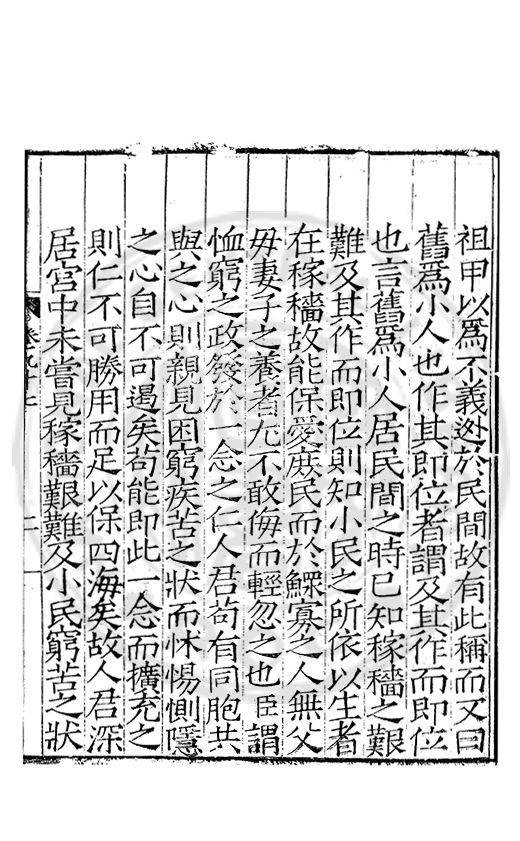 祖甲以爲不義逃於民間故有此稱而又曰
舊爲小人也作其即位者謂及其作而即位
也言舊爲小人居民間之時已知稼穡之艱
難及其作而即位則知小民之所依以生者
在稼穡故能保愛庶民而於鰥寡之人無父
毋妻子之養者尤不敢侮而輕忽之也臣謂
恤窮之政發於一念之仁人君茍有同胞共
與之心則親見困窮疾苦之狀而怵惕惻隱
之心自不可遏矣茍能即此一念而擴充之
則仁不可勝用而足以保四海矣故人君深
居宮中未嘗見稼穡艱難及小民窮苦之狀